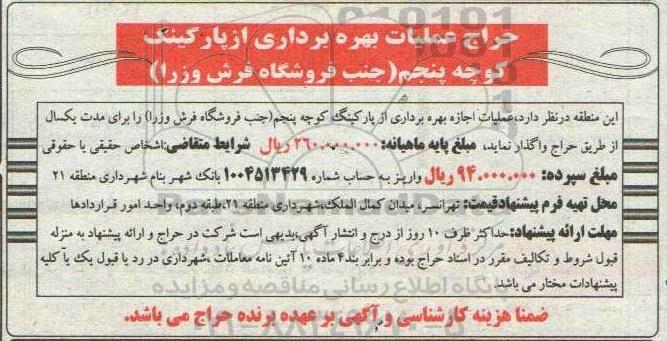 حراج عملیات بهره برداری از پارکینگ
کوچه پنجم(جنب فروشگاه فرش وزرا)
این منطقه درنظر دارد،عملیات اجازه بهره برداری از پارکینگ کوچه پنجم(جنب فروشگاه فرش وزرا) را برای مدت یکسال
از طریق حراج واگذار نماید، مبلغ پایه ماهیانه: ۲۶۰.۰۰۰.۰۰۰ ریال شرایط متقاضی:اشخاص حقیقی یا حقوقی
مبلغ سپرده: ۹۴.۰۰۰.۰۰۰ ریال واریز به حساب شماره ۱۰۰۴۵۱۳۴۲۹ بانک شهر بنام شهرداری منطقه ۲۱
محل تهیه فرم پیشنهادقیمت: تهرانسر، میدان کمال الملک،شهرداری منطقه ۲۱،طبقه دوم، واحد امور قراردادها
مهلت ارائه پیشنهاد:حداکثر ظرف ۱۰ روز از درج و انتشار آگهی،بدیهی است شرکت در حراج و ارائه پیشنهاد به منزله
قبول شروط و تکالیف مقرر در اسناد حراج بوده و برابر بند۴ ماده ۱۰ آئین نامه معاملات ،شهرداری در رد یا قبول یک یا کلیه
پیشنهادات مختار می باشد.
پایگاه اطلاع رسانی مناقصه و مزایده
ضمنا هزینه کارشناسی و آگهی بر عهده برنده حراج می باشد.